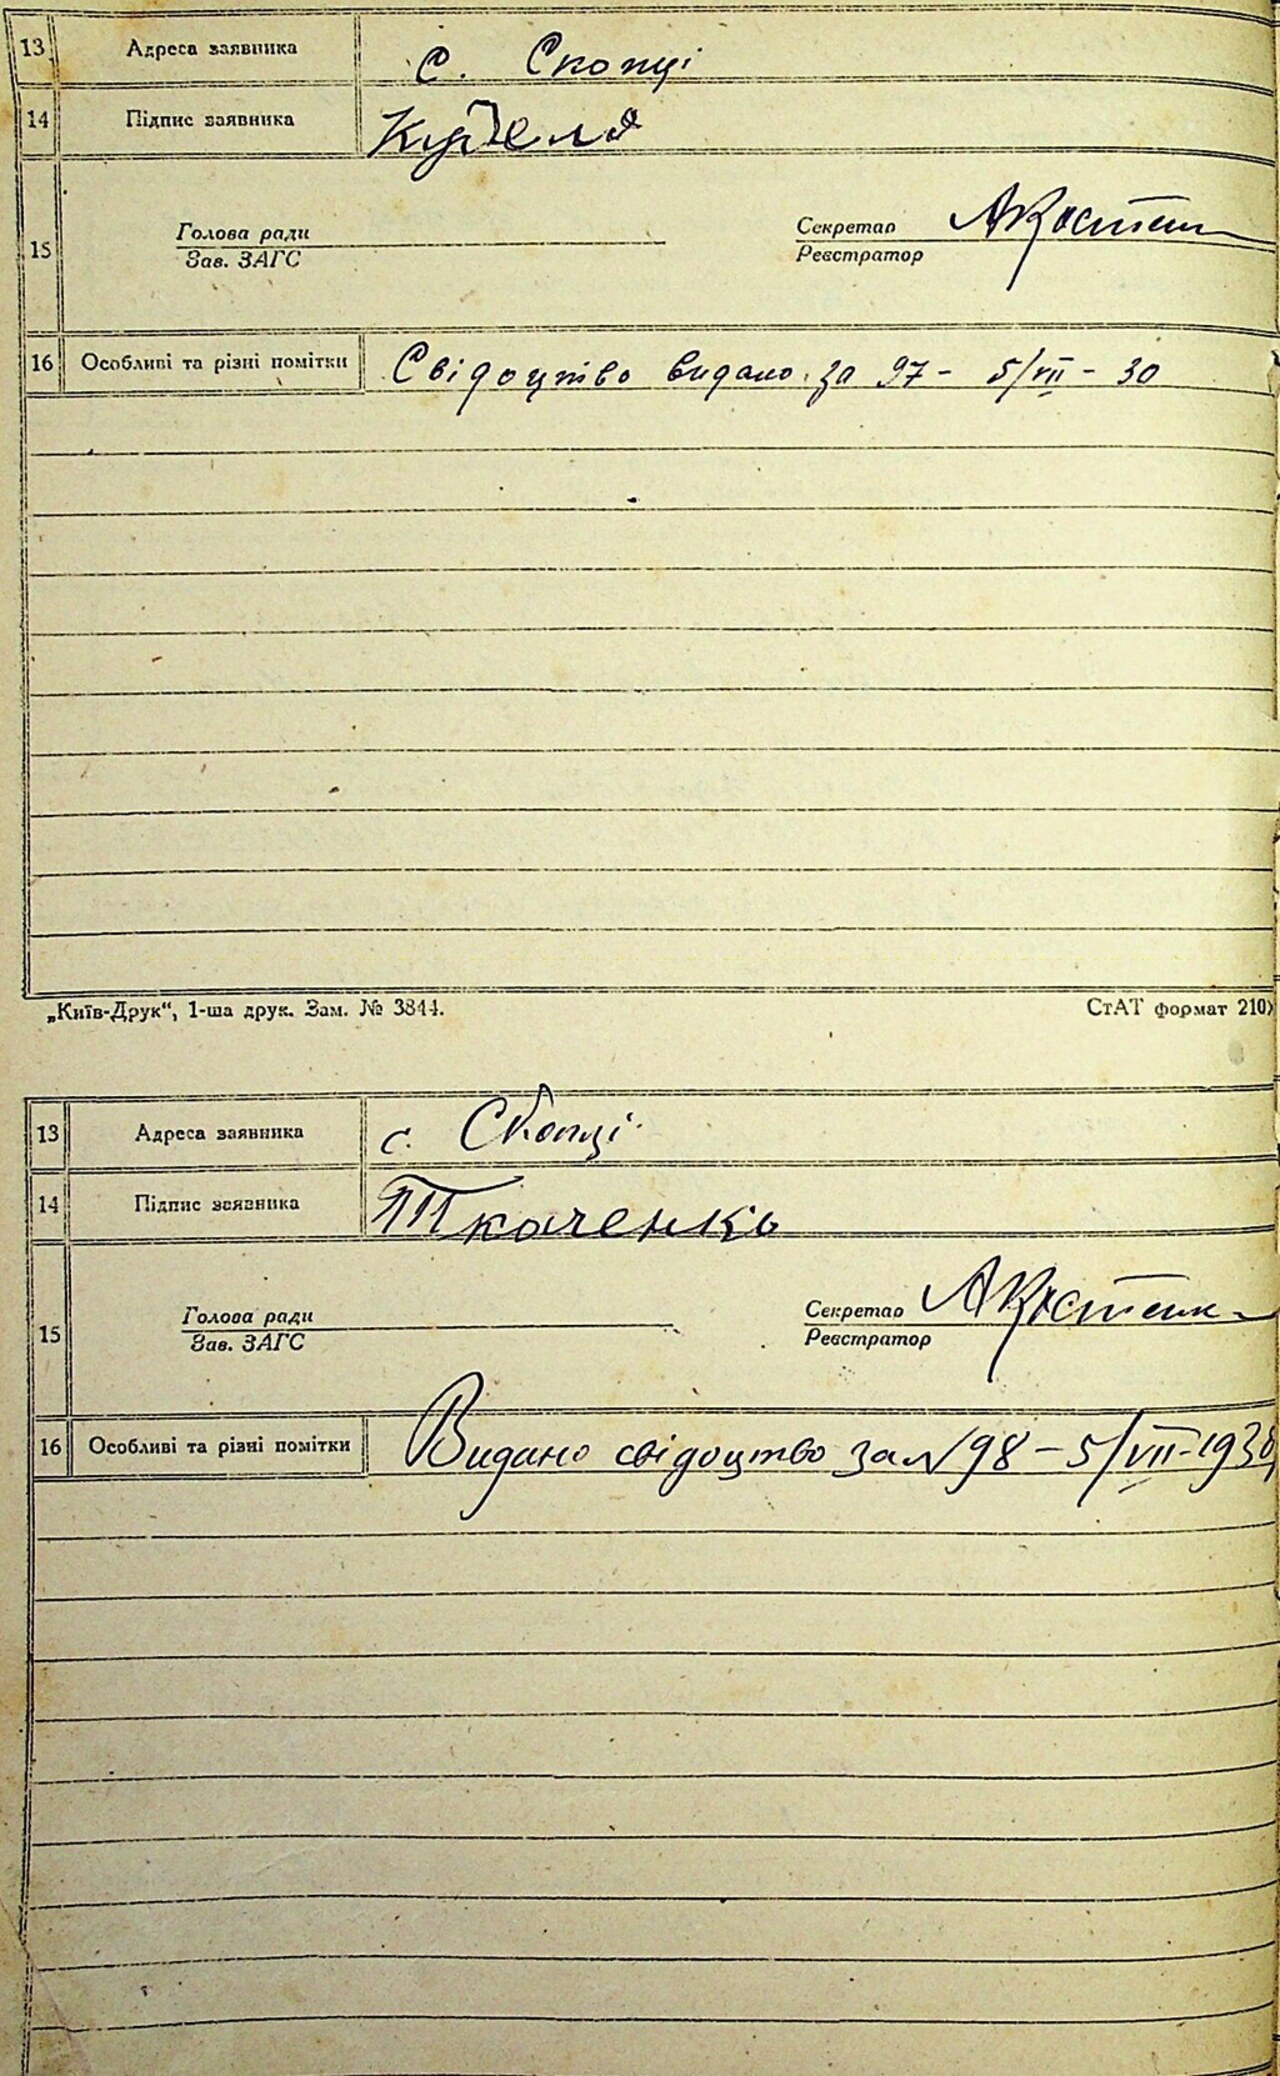 13 Адреса заявника с. Скопці
14 Підпис заявника
15 Голова ради Секретар АКостен
Зав. ЗАГС Реєстратор
16 Особливі та різні помітки Свідоцтво видано за 97 - 5/VII - 30
„Київ-Друк“, 1-ша друк. Зам. № 3844. СтАТ формат 210
13 Адреса заявника с. Скопці
14 Підпис заявника Ткаченко
15 Голова ради Секретар АКостенк
Зав. ЗАГС Реєстратор
16 Особливі та різні помітки Видано свідоцтво за N 98 - 5/VII-1930